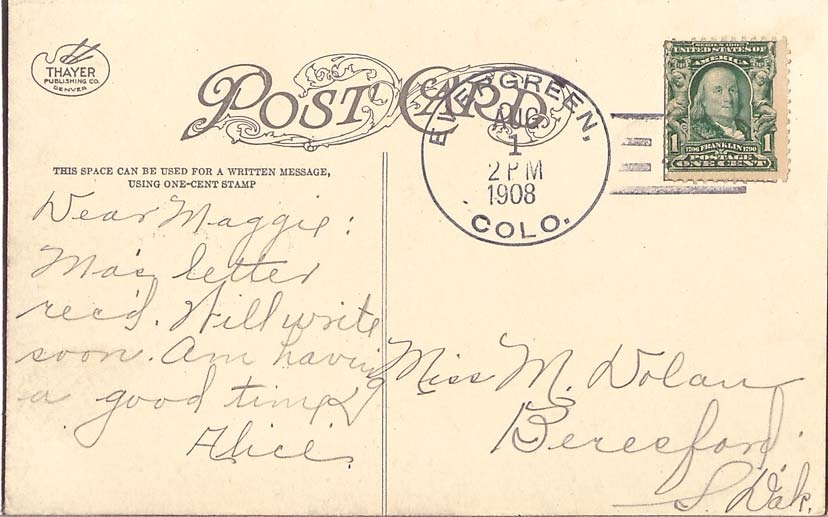 THAYER
PUBLISHING CO.
DENVER
POST CARD
THIS SPACE CAN BE USED FOR A WRITTEN MESSAGE,
USING ONE-CENT STAMP
EVERGREEN,
AUG
1
2 PM
1908
COLO.
SERIES 1902
UNITED STATES OF
AMERICA
1 1
1706 FRANKLIN 1790
POSTAGE
ONE CENT
Dear Maggie:
Ma's letter
rec'd. Will write
soon. Am having
a good time
Alice.
Miss M. Dolan
Beresford.
S. Dak.